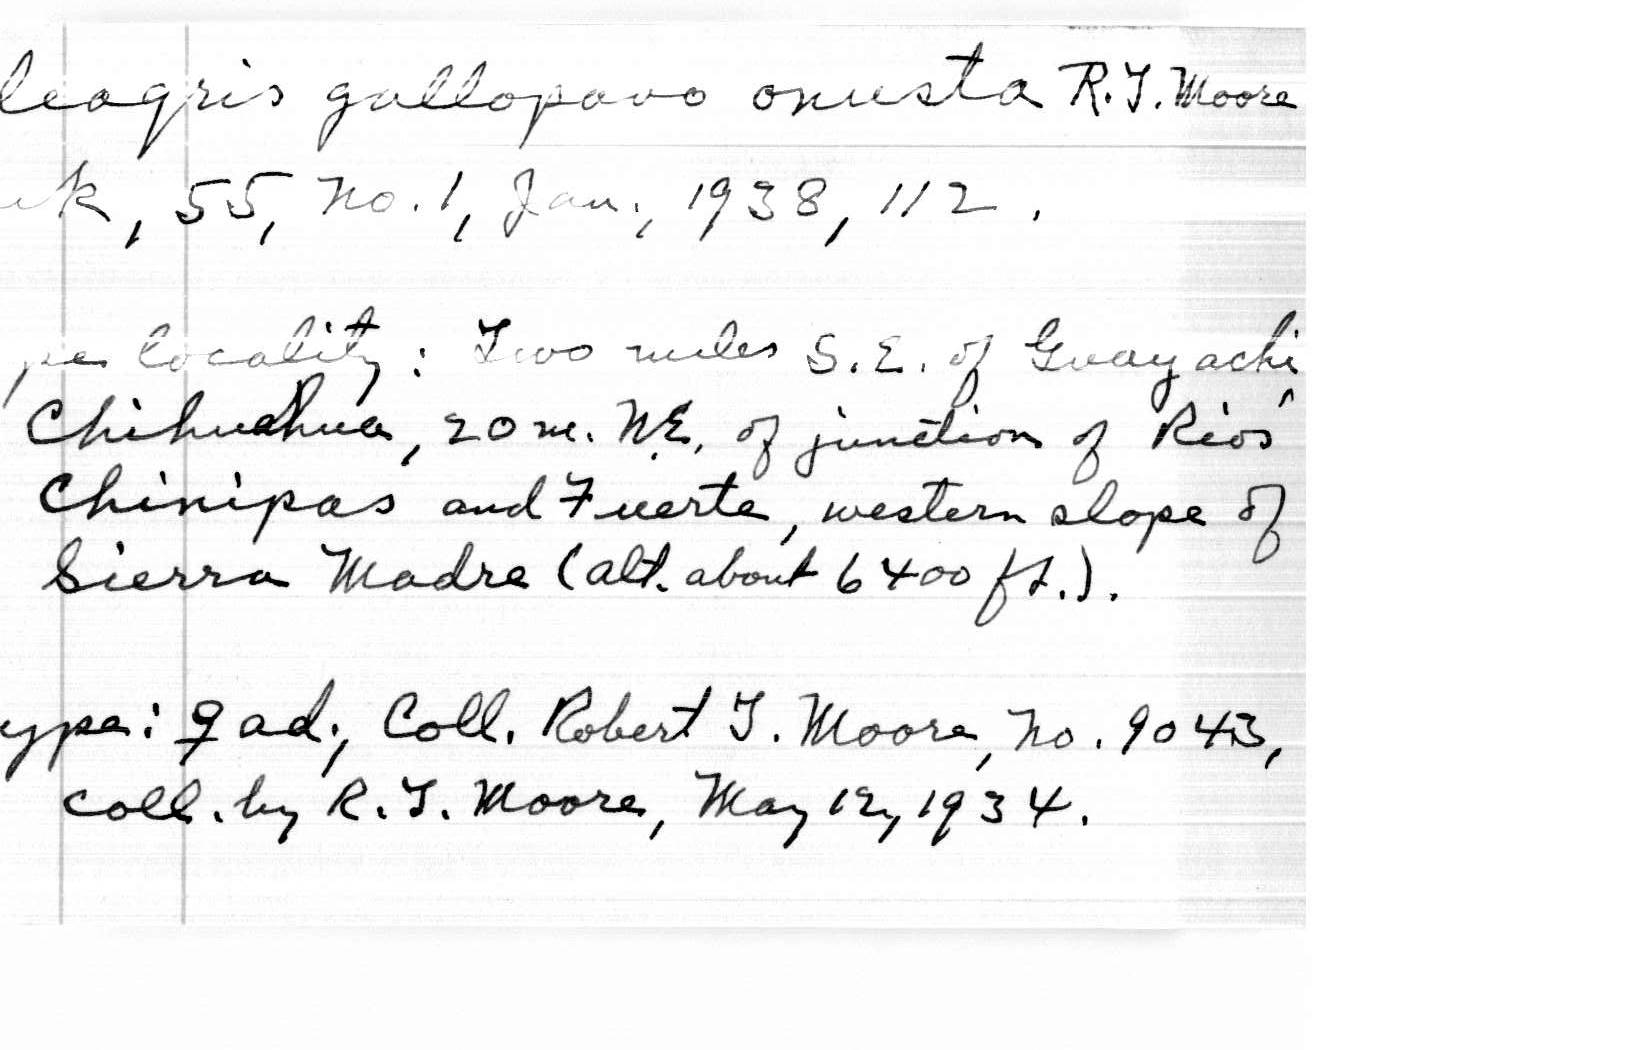 leagris gallopavo onusta R.T. Moore
uk, 55, No. 1, Jan., 1938, 112.
pe locality: Two miles S.E. of Guayachi,
Chihuahua, 20 m. N.E. of junction of Rios
Chinipas and Fuerte, western slope of
Sierra Madre (alt. about 6400 ft.).
ype: ♀ ad., Coll. Robert T. Moore, No. 9043,
coll. by R.T. Moore, May 12, 1934.